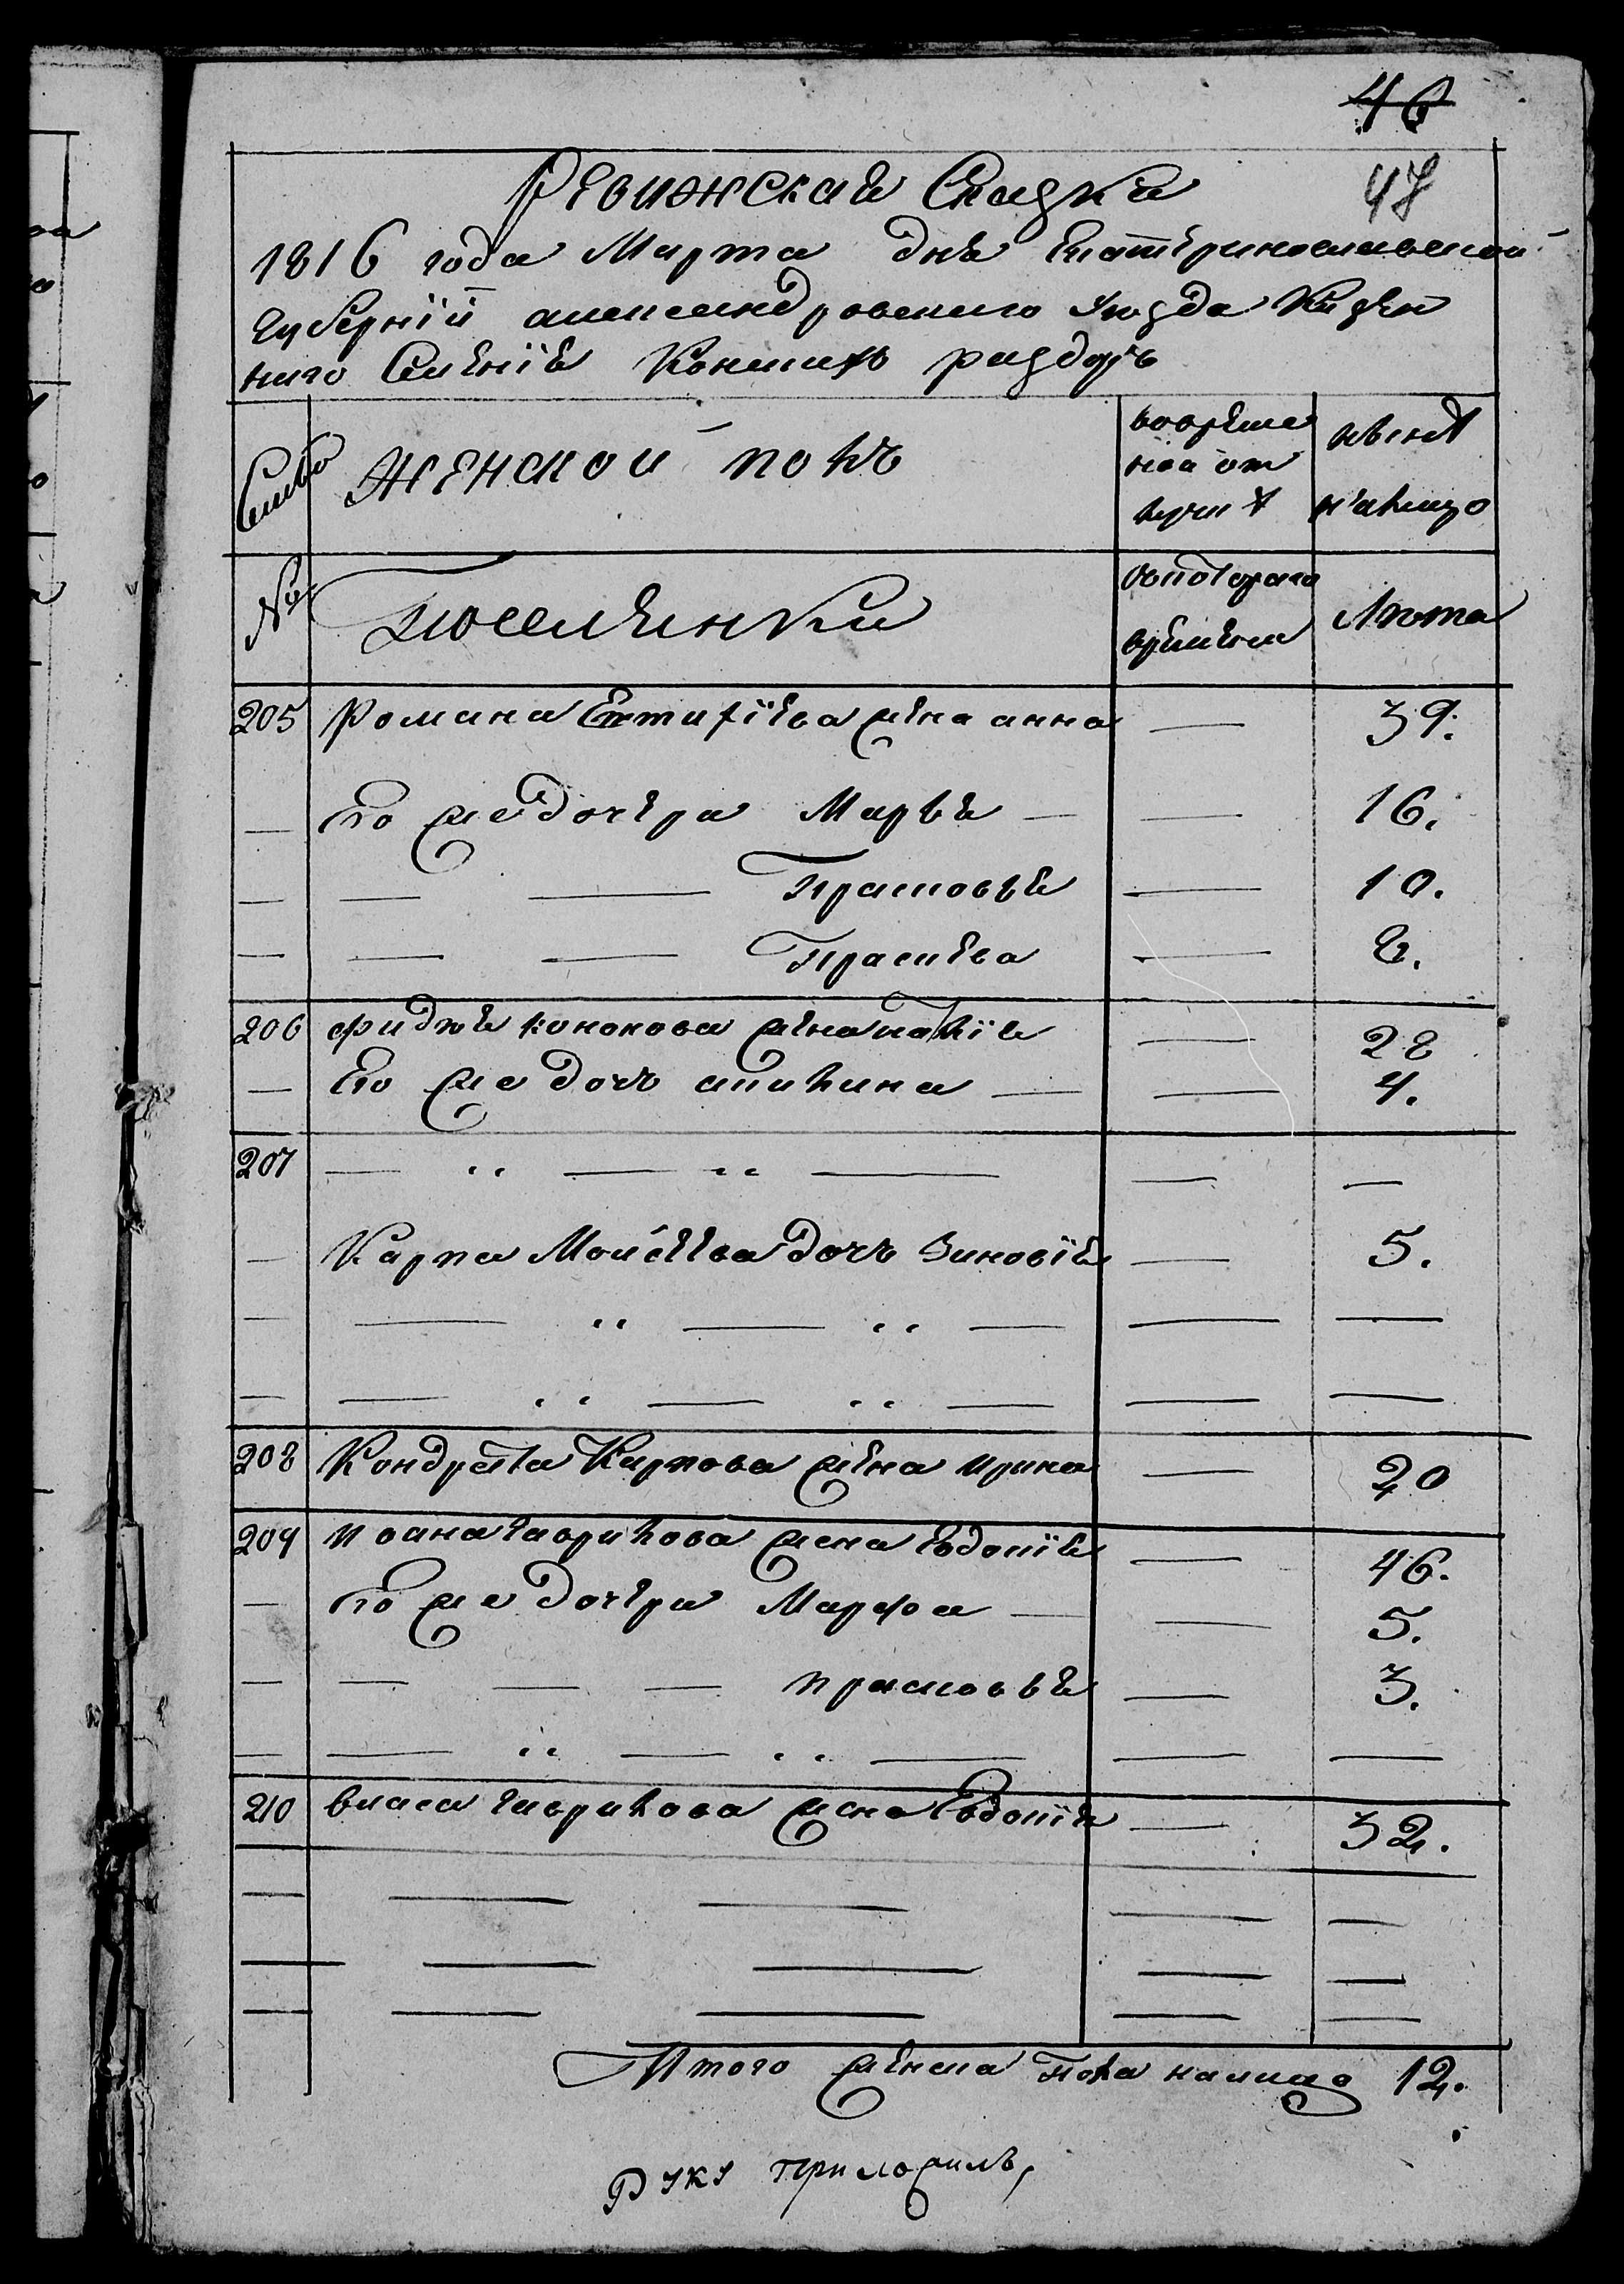 46
47
Ревижская Сказка
1816 года Марта дня Екаттериносławской
Губернїи александровского уезда Казен
наго Селенїя Конских раздоръ
Семьи женской полъ вовременной отлучкѣ нынѣ налицо
№ Поселянки Скотораго времени Лѣта
205 Романа Евтифїева жена анна — 39.
— Его же дочери Марья — — 16.
— — — Прасковья — 10.
— — — Праскева — 8.
206 фидѣя кононова жена наталїя — 28
— Его же дочь акилина — — 4.
207 — „ — „ — — —
— Карпа Мойсеева дочь Зиновїя — 5.
— — „ — „ — — —
— — „ — „ — — —
208 Кондрата Карпова жена ирина — 20
209 Иоана гаврилова жена Евдокїя — 46.
— Его же дочери Марфа — — 5.
— — — — прасковья — 3.
— — „ — „ — — —
210 власа гаврилова жена Евдокїя — 32.
— — — — —
— — — — —
— — — — —
Итого женска пола налицо 12.
Руку приложилъ,